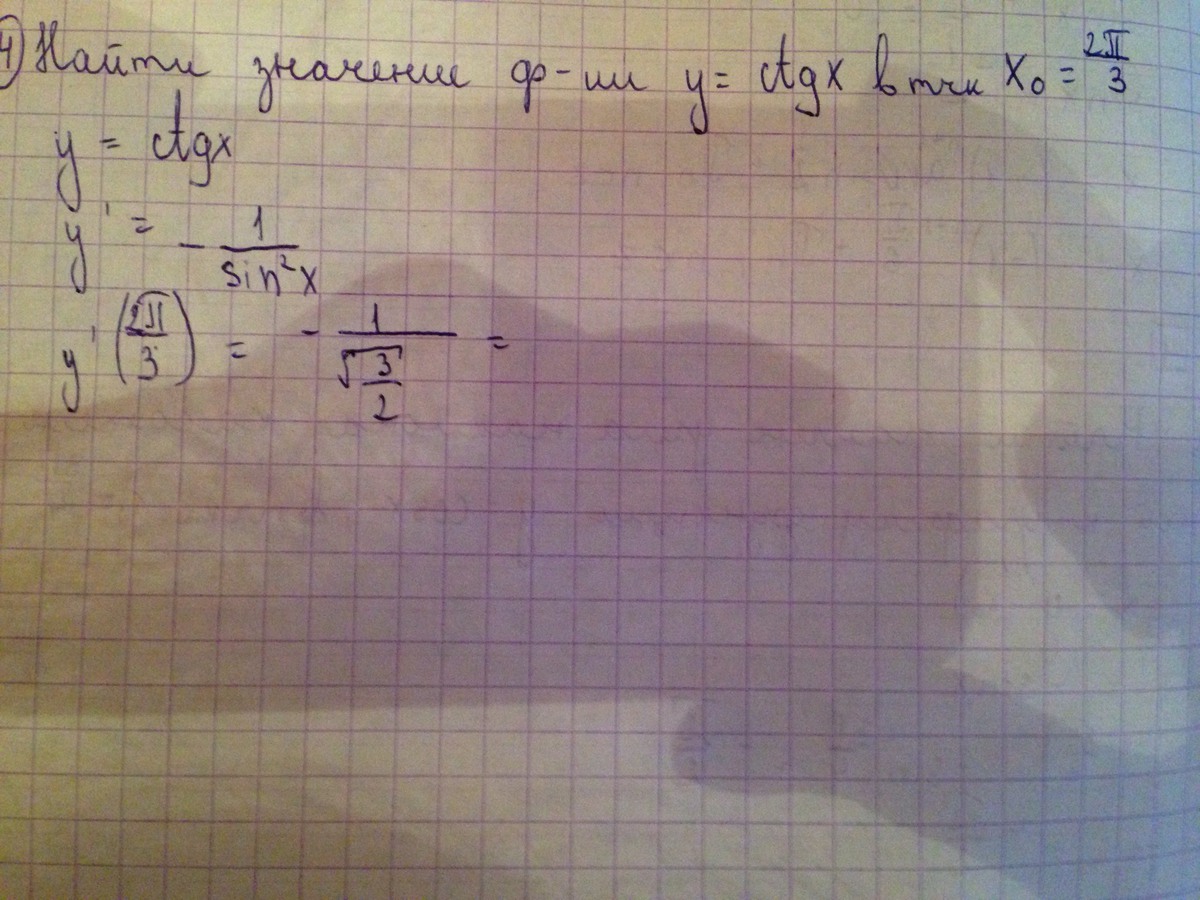 4) Найти значение ф-ии y = ctgx в тчк x₀ = 2π/3
y = ctgx
y' = - 1/sin²x
y'(2π/3) = - 1/√(3/2) =